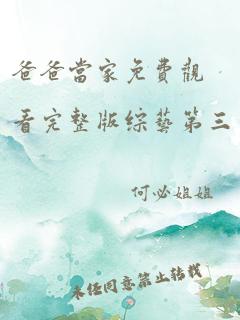 爸爸當家免費觀
看完整版綜藝第三
何必姐姐
未經同意禁止轉載